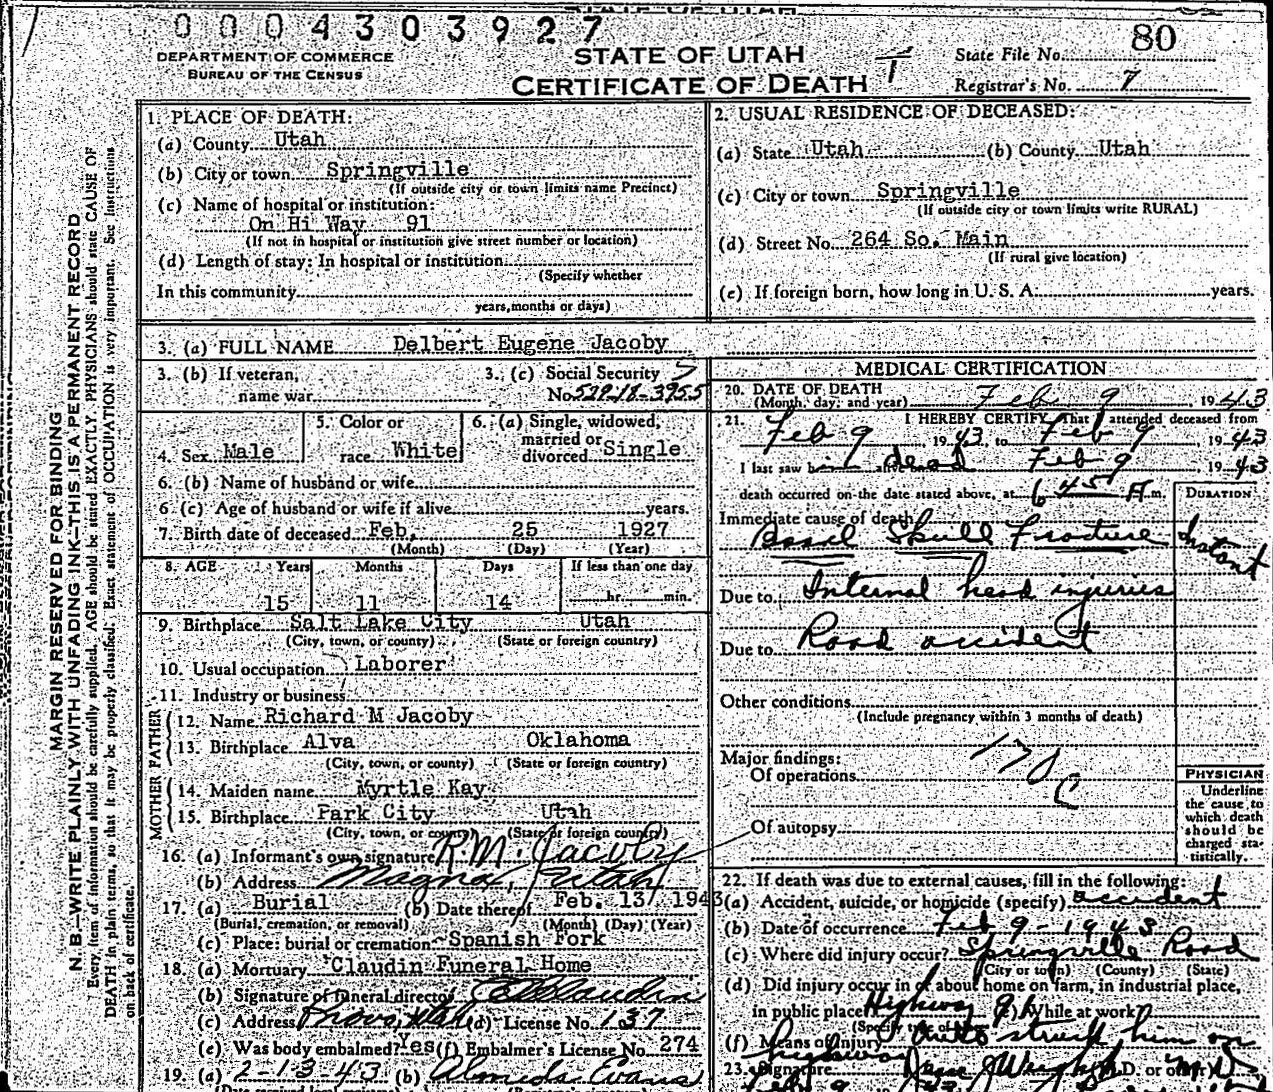 0004303927
DEPARTMENT OF COMMERCE
BUREAU OF THE CENSUS
STATE OF UTAH
CERTIFICATE OF DEATH
State File No. 80
Registrar's No. 7
MARGIN RESERVED FOR BINDING
N. B.—WRITE PLAINLY WITH UNFADING INK—THIS IS A PERMANENT RECORD
Every item of information should be carefully supplied. AGE should be stated EXACTLY. PHYSICIANS should state CAUSE OF
DEATH in plain terms, so that it may be properly classified. Exact statement of OCCUPATION is very important. See Instructions
on back of certificate.
1. PLACE OF DEATH:
(a) County Utah
(b) City or town Springville
(If outside city or town limits name Precinct)
(c) Name of hospital or institution:
On Hi Way 91
(If not in hospital or institution give street number or location)
(d) Length of stay: In hospital or institution
(Specify whether
In this community
years, months or days)
2. USUAL RESIDENCE OF DECEASED:
(a) State Utah (b) County Utah
(c) City or town Springville
(If outside city or town limits write RURAL)
(d) Street No. 264 So. Main
(If rural give location)
(e) If foreign born, how long in U. S. A. years.
3. (a) FULL NAME Delbert Eugene Jacoby
3. (b) If veteran, name war
3. (c) Social Security No. 529-18-3955
4. Sex Male
5. Color or race White
6. (a) Single, widowed, married or divorced Single
6. (b) Name of husband or wife
6 (c) Age of husband or wife if alive years.
7. Birth date of deceased Feb. 25 1927
(Month) (Day) (Year)
8. AGE Years Months Days If less than one day
15 11 14 hr. min.
9. Birthplace Salt Lake City Utah
(City, town, or county) (State or foreign country)
10. Usual occupation Laborer
11. Industry or business
FATHER
12. Name Richard M Jacoby
13. Birthplace Alva Oklahoma
(City, town, or county) (State or foreign country)
MOTHER
14. Maiden name Myrtle Kay
15. Birthplace Park City Utah
(City, town, or county) (State or foreign country)
16. (a) Informant's own signature R.M. Jacoby
(b) Address Magna, Utah
17. (a) Burial (b) Date thereof Feb. 13, 1943
(Burial, cremation, or removal) (Month) (Day) (Year)
(c) Place: burial or cremation Spanish Fork
18. (a) Mortuary Claudin Funeral Home
(b) Signature of funeral director Claudin
(c) Address Provo, Utah (d) License No. 137
(e) Was body embalmed? Yes (f) Embalmer's License No. 274
19. (a) 2-13-43 (b) Almeda Evans
MEDICAL CERTIFICATION
20. DATE OF DEATH
(Month, day, and year) Feb 9 1943
21. I HEREBY CERTIFY That I attended deceased from
Feb 9 1943 to Feb 9 1943
I last saw him alive dead Feb 9 1943
death occurred on the date stated above, at 6 45 A. m.
DURATION
Immediate cause of death
Basel Skull Fracture Instant
Due to Internal head injuries
Due to Road accident
Other conditions
(Include pregnancy within 3 months of death)
170 C
Major findings:
Of operations
Of autopsy
PHYSICIAN
Underline
the cause to
which death
should be
charged sta-
tistically.
22. If death was due to external causes, fill in the following:
(a) Accident, suicide, or homicide (specify) accident
(b) Date of occurrence Feb 9 - 1943
(c) Where did injury occur? Springville Road
(City or town) (County) (State)
(d) Did injury occur in or about home on farm, in industrial place,
in public place? Highway 91 (e) While at work?
(Specify type of place)
(f) Means of injury Auto struck him on
highway
23. Signature M.D. or other